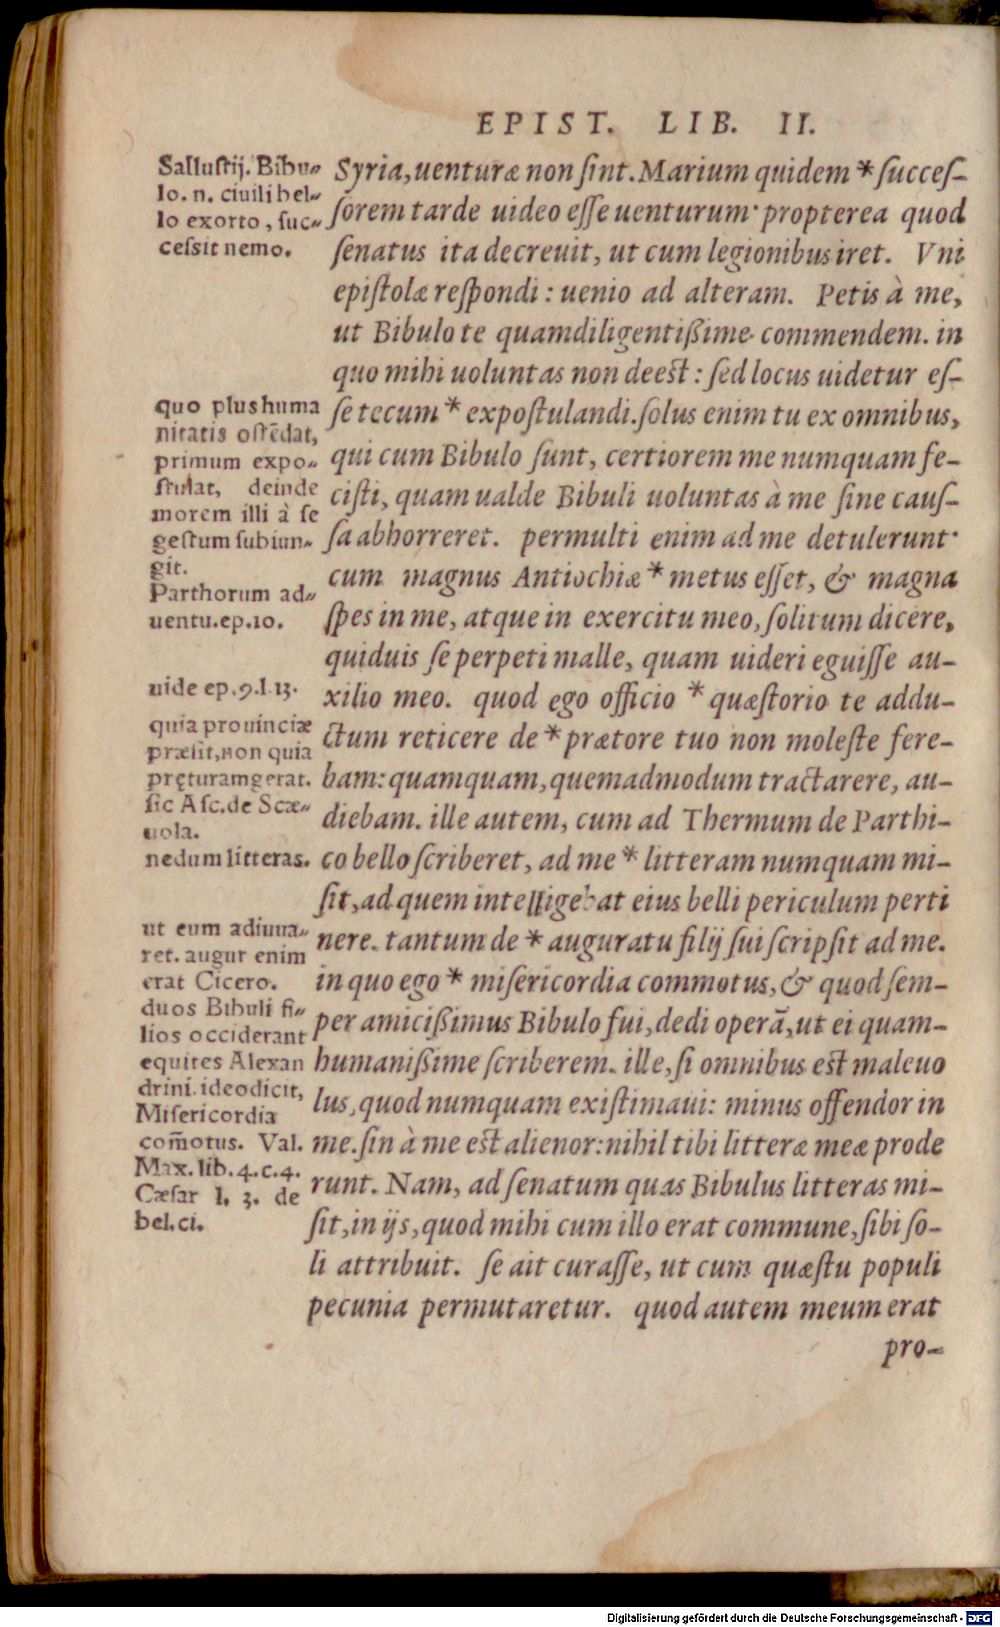 EPIST. LIB. II.
Sallustij. Bibu-
lo. n. ciuili bel-
lo exorto, suc-
cessit nemo.
quo plus huma
nitatis ostēdat,
primum expo-
stulat, deinde
morem illi à se
gestum subiun-
git.
Parthorum ad-
uentu. ep. 10.
uide ep. 9. l. 13.
quia prouinciæ
præsit, non quia
pręturam gerat.
sic Asc. de Scæ-
uola.
nedum litteras.
ut eum adiuua-
ret. augur enim
erat Cicero.
duos Bibuli fi-
lios occiderant
equites Alexan
drini. ideo dicit,
Misericordia
com̄otus. Val.
Max. lib. 4. c. 4.
Cæsar l. 3. de
bel. ci.
Syria, uenturæ non sint. Marium quidem * succes-
sorem tarde uideo esse uenturum· propterea quod
senatus ita decreuit, ut cum legionibus iret. Vni
epistolæ respondi: uenio ad alteram. Petis à me,
ut Bibulo te quamdiligentißime commendem. in
quo mihi uoluntas non deest: sed locus uidetur es-
se tecum * expostulandi. solus enim tu ex omnibus,
qui cum Bibulo sunt, certiorem me numquam fe-
cisti, quam ualde Bibuli uoluntas à me sine caus-
sa abhorreret. permulti enim ad me detulerunt·
cum magnus Antiochiæ * metus esset, & magna
spes in me, atque in exercitu meo, solitum dicere,
quiduis se perpeti malle, quam uideri eguisse au-
xilio meo. quod ego officio * quæstorio te addu-
ctum reticere de * prætore tuo non moleste fere-
bam: quamquam, quemadmodum tractarere, au-
diebam. ille autem, cum ad Thermum de Parthi-
co bello scriberet, ad me * litteram numquam mi-
sit, ad quem intelligebat eius belli periculum perti
nere. tantum de * auguratu filij sui scripsit ad me.
in quo ego * misericordia commotus, & quod sem-
per amicißimus Bibulo fui, dedi operā, ut ei quam-
humanißime scriberem. ille, si omnibus est maleuo
lus, quod numquam existimaui: minus offendor in
me. sin à me est alienor: nihil tibi litteræ meæ prode
runt. Nam, ad senatum quas Bibulus litteras mi-
sit, in ijs, quod mihi cum illo erat commune, sibi so-
li attribuit. se ait curasse, ut cum quæstu populi
pecunia permutaretur. quod autem meum erat
pro-
Digitalisierung gefördert durch die Deutsche Forschungsgemeinschaft - DFG